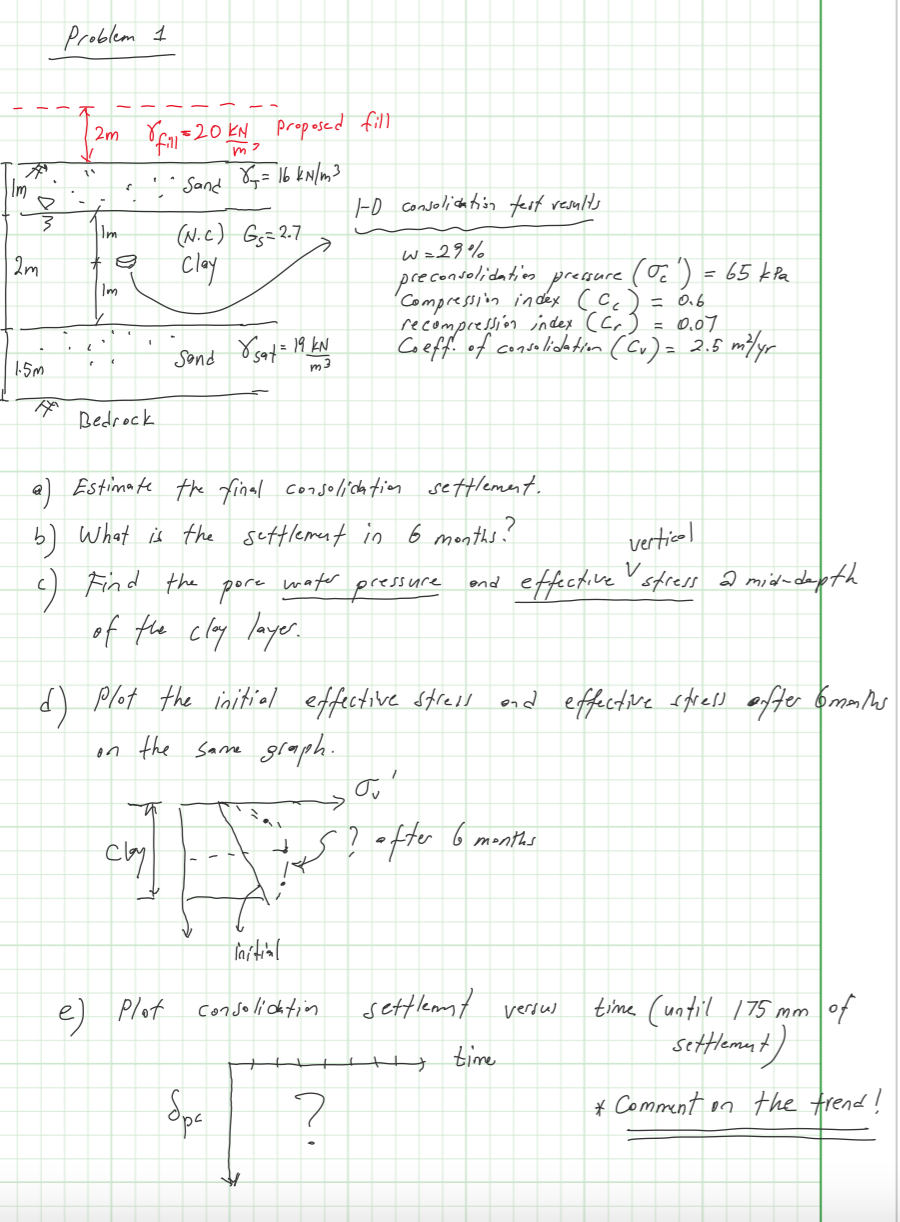 Problem 1
2m γfill = 20 kN/m³ Proposed fill
1m Sand γT = 16 kN/m³
1-D consolidation test results
1m (N.C) Gs = 2.7
2m Clay
1m
w = 29%
preconsolidation pressure (σc') = 65 kPa
Compression index (Cc) = 0.6
recompression index (Cr) = 0.07
Coeff. of consolidation (Cv) = 2.5 m²/yr
1.5m Sand γsat = 19 kN/m³
Bedrock
a) Estimate the final consolidation settlement.
b) What is the settlement in 6 months?
c) Find the pore water pressure and effective vertical stress @ mid-depth
of the clay layer.
d) Plot the initial effective stress and effective stress after 6 months
on the same graph.
σv'
Clay ? after 6 months
initial
e) Plot consolidation settlemnt versus time (until 175 mm of
settlement)
time
δpc ?
* Comment on the trend!